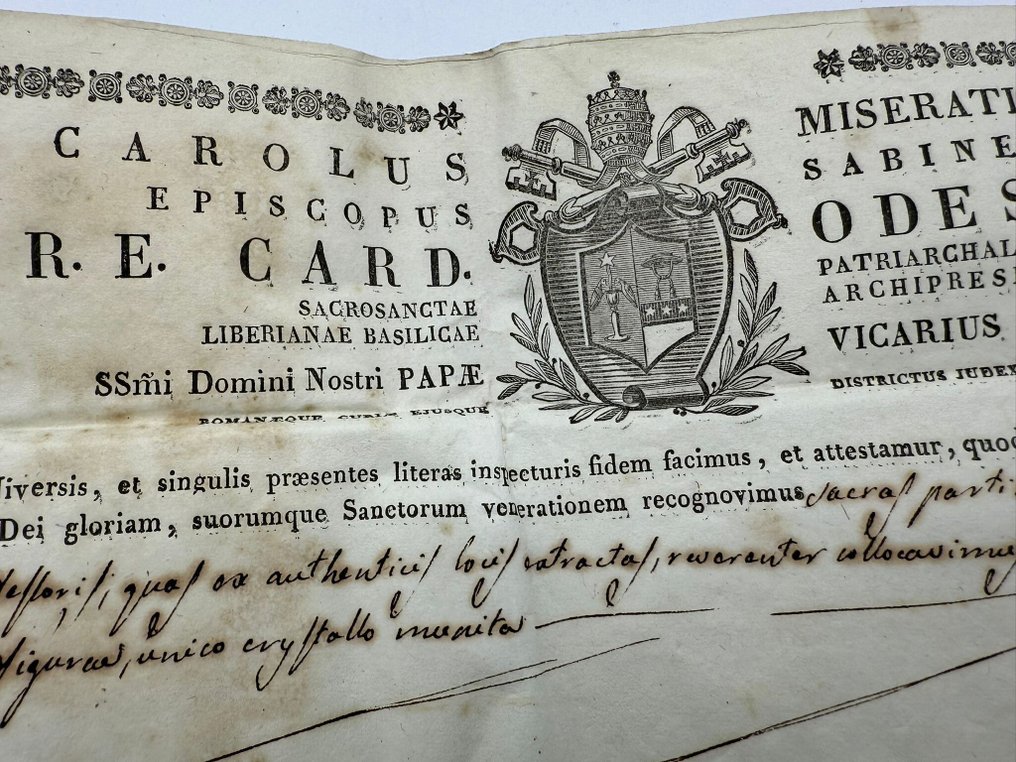 CAROLUS MISERATI
EPISCOPUS SABINE
R. E. CARD. ODES
SACROSANCTAE PATRIARCHAL
LIBERIANAE BASILICAE ARCHIPRES
SSm̃i Domini Nostri PAPÆ VICARIUS
ROMANÆQUE CURIÆ EJUSQUE DISTRICTUS IUDEX
iversis, et singulis præsentes literas inspecturis fidem facimus, et attestamur, quod
Dei gloriam, suorumque Sanctorum venerationem recognovimus sacras parti
essoris, quas ex authenticis locis extractas, reverenter collocavimus
figurae, unico crystallo munita